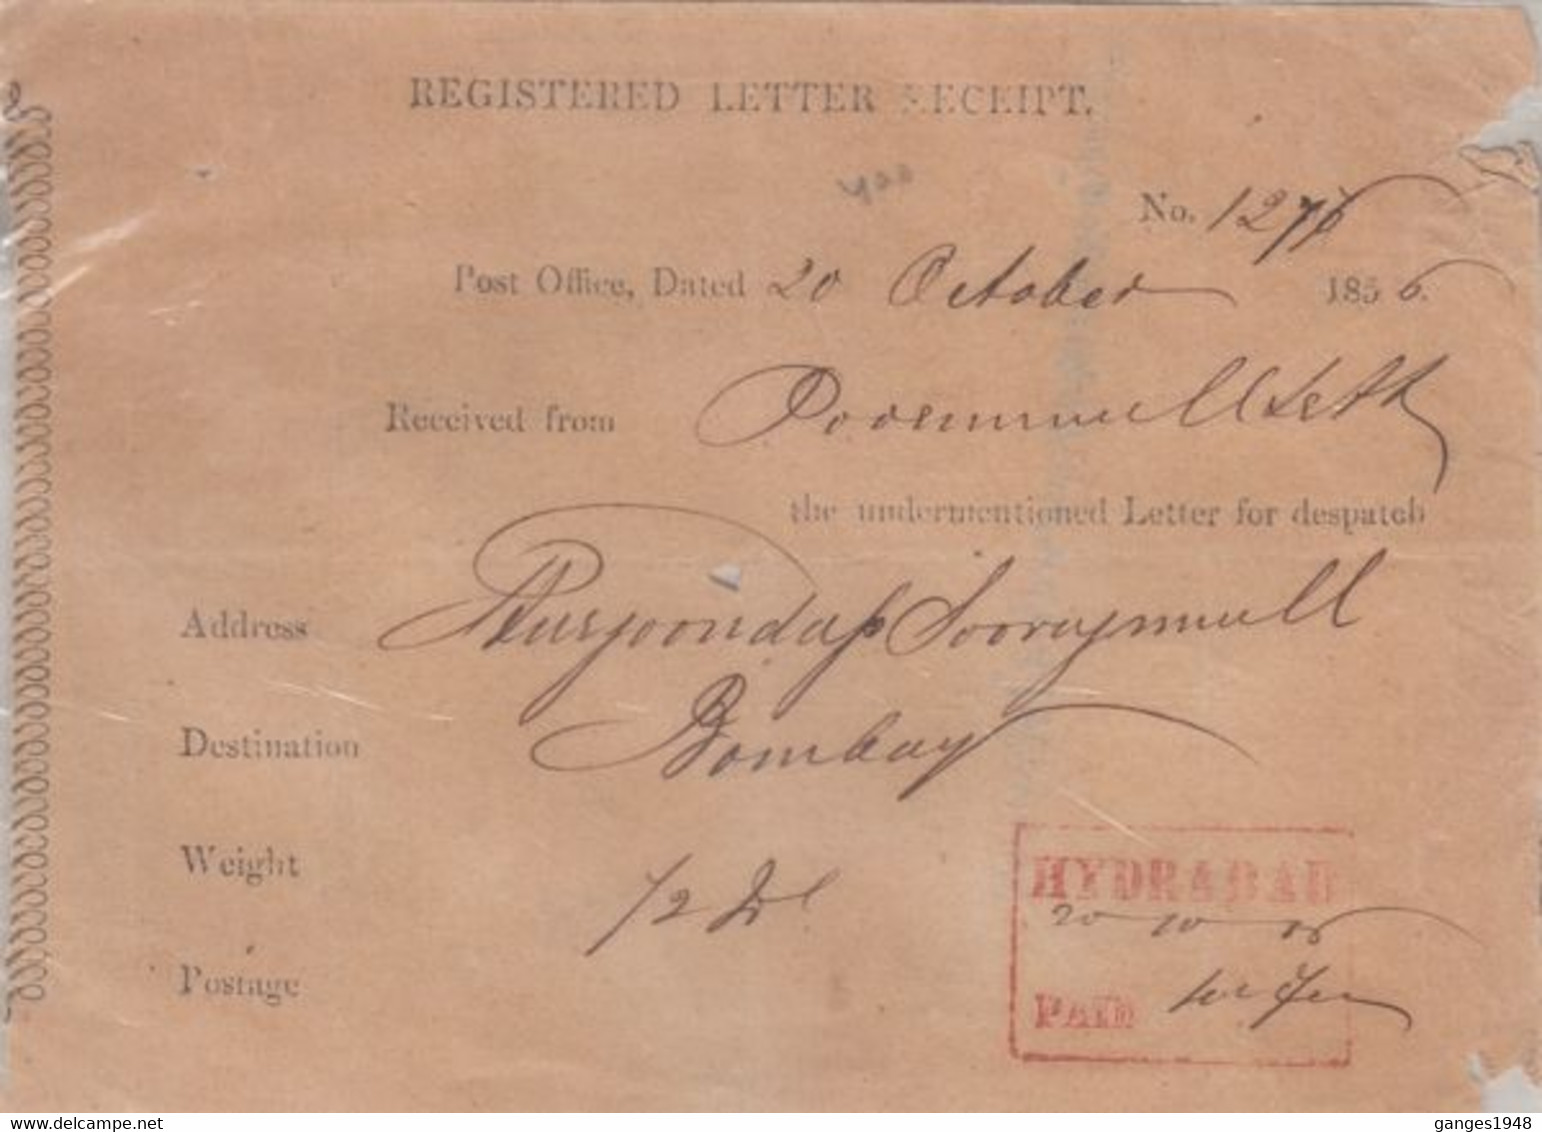 REGISTERED LETTER RECEIPT.
No. 1276
Post Office, Dated 20 October 1856.
Received from Poorunmull Seth
the undermentioned Letter for despatch
Address Pursoondass Soorujmull
Destination Bombay
Weight 1/2
Postage
HYDRABAD
20 10
PAID
ganges1948